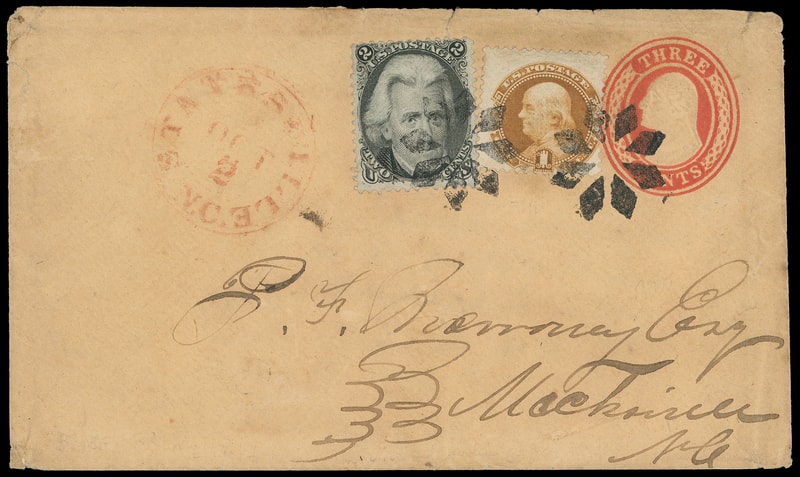 STATESVILLE
N.C.
OCT
2
U.S. POSTAGE
2 2
TWO CENTS
U.S. POSTAGE
1
THREE
CENTS
P. F. Esq
Mocksville
N C